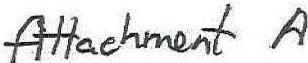 Attachment A